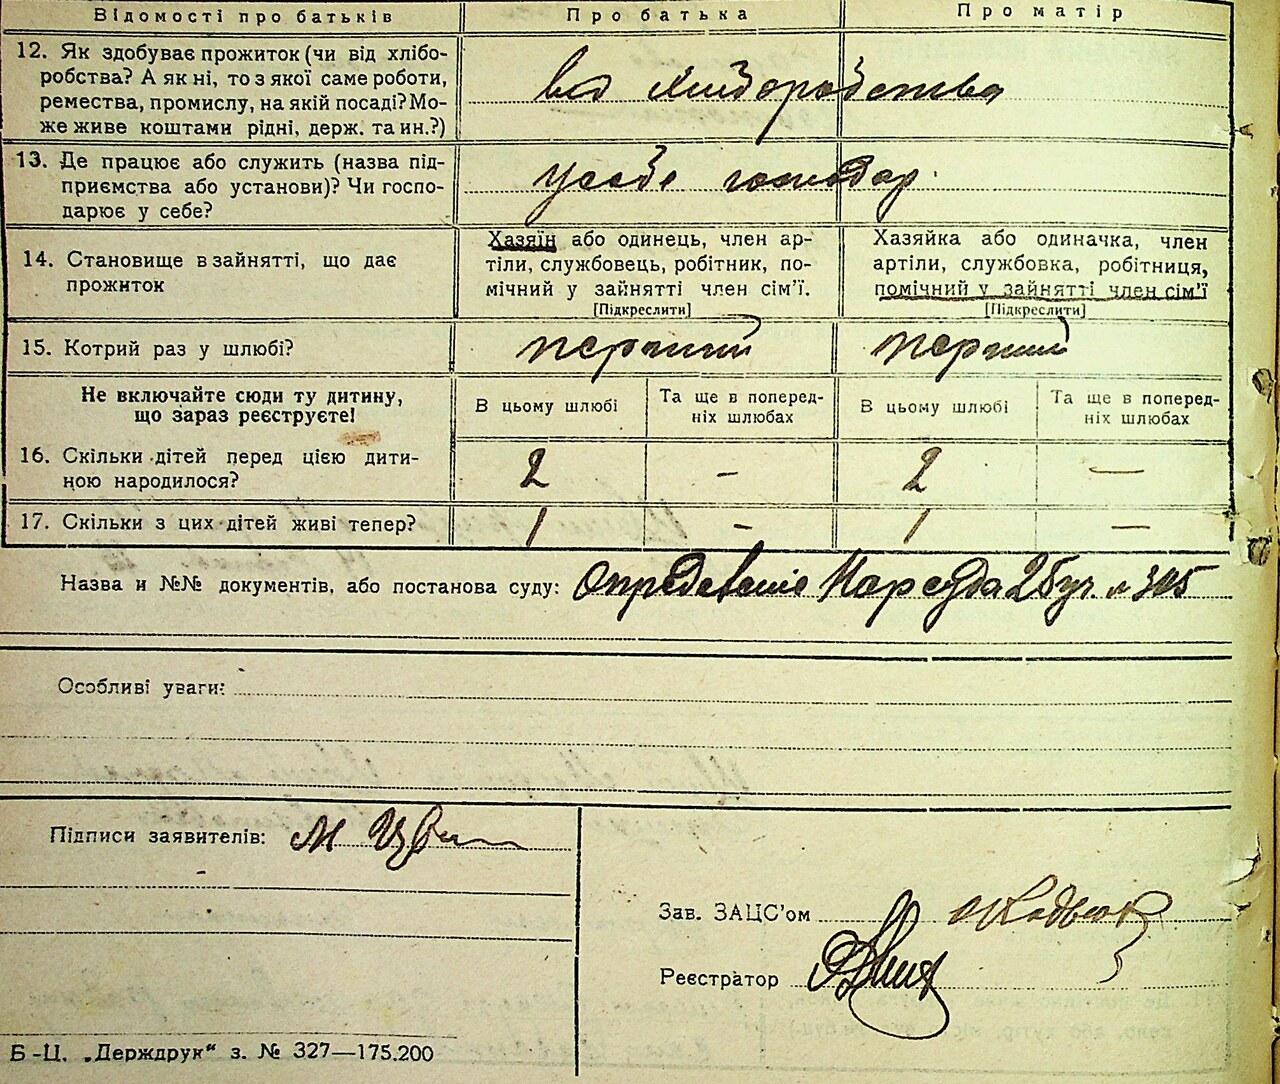 Відомості про батьків Про батька Про матір
12. Як здобуває прожиток (чи від хлібо-
робства? А як ні, то з якої саме роботи,
ремества, промислу, на якій посаді? Мо-
же живе коштами рідні, держ. та ин.?)
від хліборобства
13. Де працює або служить (назва під-
приємства або установи)? Чи госпо-
дарює у себе?
у себе господар
14. Становище в зайнятті, що дає
прожиток
Хазяїн або одинець, член ар-
тіли, службовець, робітник, по-
мічний у зайнятті член сім'ї.
[Підкреслити]
Хазяйка або одиначка, член
артіли, службовка, робітниця,
помічний у зайнятті член сім'ї
[Підкреслити]
15. Котрий раз у шлюбі? перший перший
Не включайте сюди ту дитину,
що зараз реєструєте!
В цьому шлюбі
Та ще в поперед-
ніх шлюбах
В цьому шлюбі
Та ще в поперед-
ніх шлюбах
16. Скільки дітей перед цією дити-
ною народилося?
2 - 2 —
17. Скільки з цих дітей живі тепер? 1 - 1 —
Назва и №№ документів, або постанова суду: Нарсуда 25 уч. № 305
Особливі уваги:
Підписи заявителів: М
Зав. ЗАЦС'ом
Реєстратор
Б-Ц. „Держдрук“ з. № 327—175.200